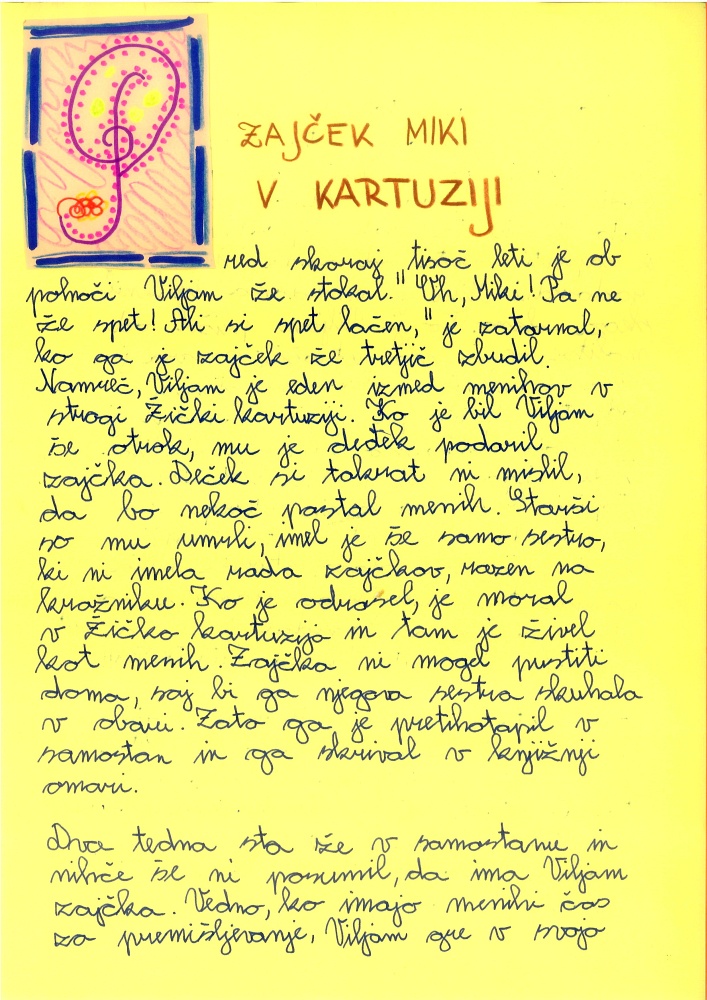 ZAJČEK MIKI
V KARTUZIJI
Pred skoraj tisoč leti je ob
polnoči Viljam že stokal. "Uh, Miki! Pa ne
že spet! Ali si spet lačen," je zatarnal,
ko ga je zajček že tretjič zbudil.
Namreč, Viljam je eden izmed menihov v
strogi Žički kartuziji. Ko je bil Viljam
še otrok, mu je dedek podaril
zajčka. Deček si takrat ni mislil,
da bo nekoč postal menih. Starši
so mu umrli, imel je še samo sestro,
ki ni imela rada zajčkov, razen na
krožniku. Ko je odrasel, je moral
v Žičko kartuzijo in tam je živel
kot menih. Zajčka ni mogel pustiti
doma, saj bi ga njegova sestra skuhala
v obari. Zato ga je pretihotapil v
samostan in ga skrival v knjižnji
omari.
Dva tedna sta že v samostanu in
nihče še ni posumil, da ima Viljam
zajčka. Vedno, ko imajo menihi čas
za premišljevanje, Viljam gre v svojo